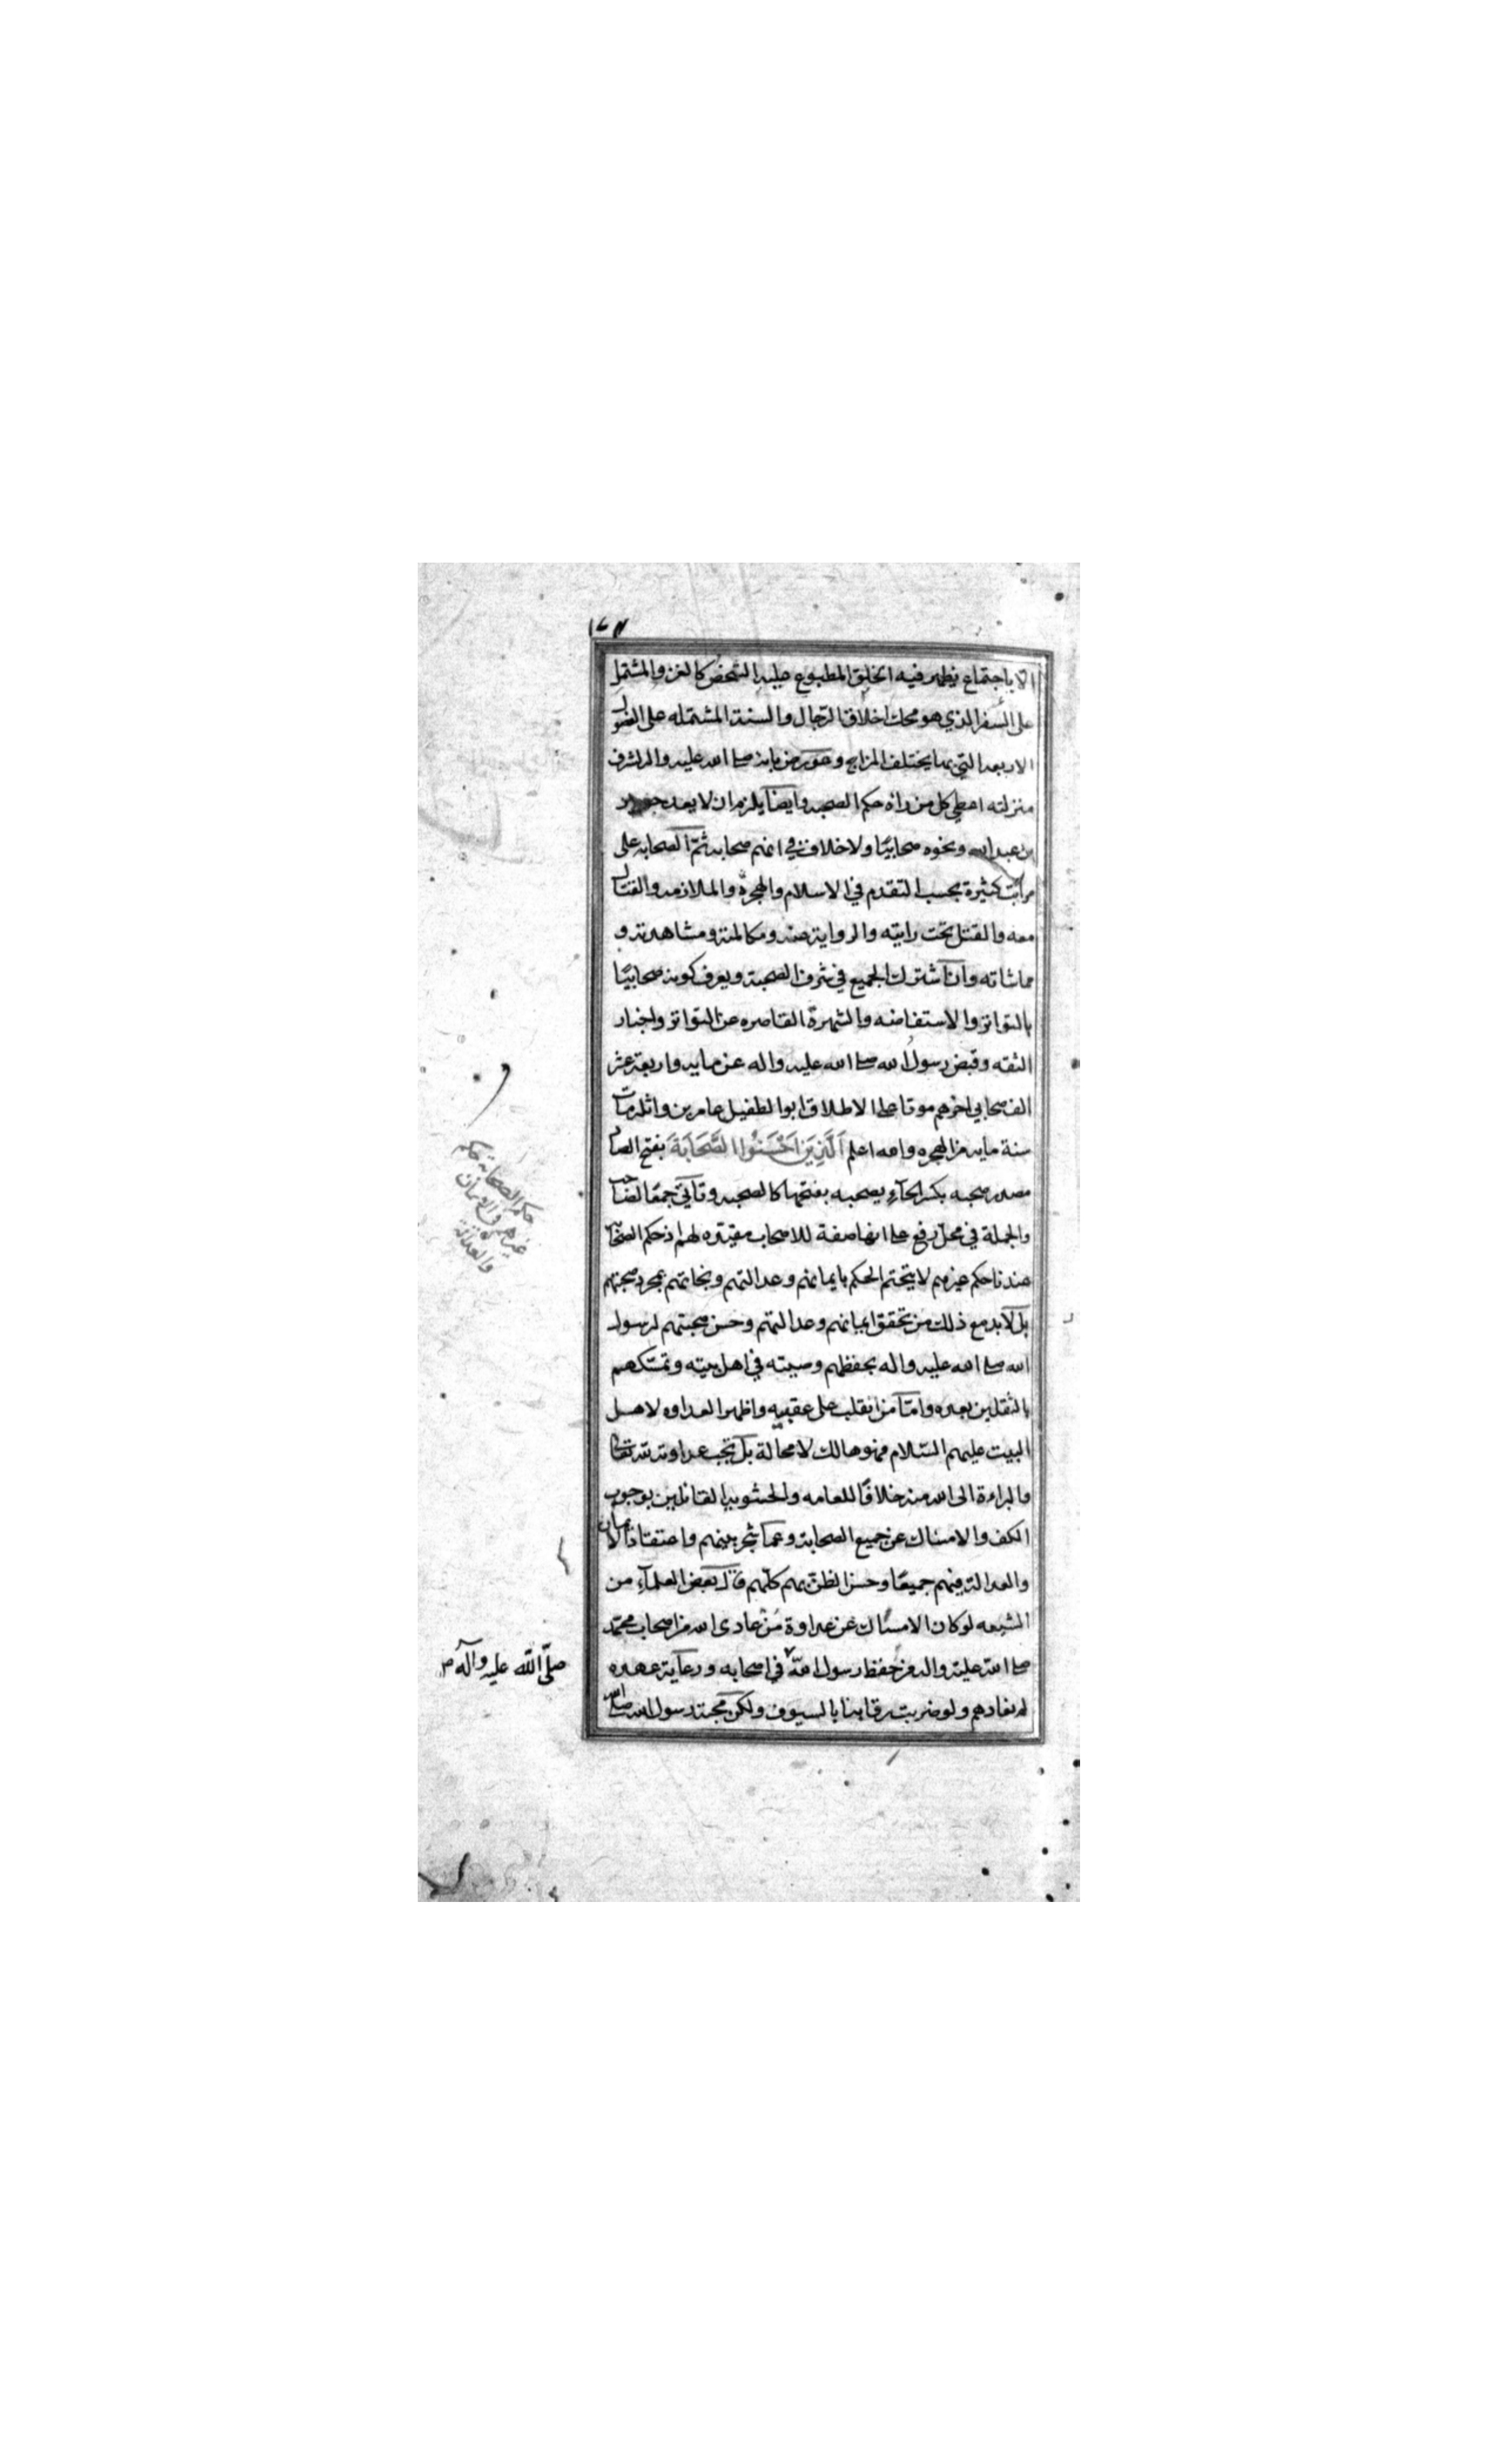 الا باجتماع يظهر فيه الخلق المطبوع عليه الشخص كالغزو المشتمل
على السفر الذي هو محك اخلاق الرجال والسنة المشتمله على الفصول
الاربعة التي بها يختلف المزاج وعورض بانه صلى الله عليه واله لشرف
منزلته اعطي كل من راه حكم الصحبه وايضا يلزم ان لا يعد جرير
بن عبد الله ونحوه صحابيًا ولا خلاف في انهم صحابه ثمّ الصحابه على
مراتب كثيرة بحسب التقدم في الاسلام والهجرة والملازمه والقتال
معه والقتل تحت رايته والرواية عنه ومكالمته ومشاهدته و
مماشاته وان اشترك الجميع في شرف الصحبة ويعرف كونه صحابيًا
بالتواتر والاستفاضه والشهرة القاصره عن التواتر واخبار
الثقه وقبض رسول الله صلى الله عليه واله عن مايه واربعة عشر
الف صحابي اخرهم موتا على الاطلاق ابو الطفيل عامر بن واثله مات
سنة مايه من الهجره والله اعلم اَلَّذِيَن اَحْسَنُوا الصَّحَابَةَ بفتح الصاد
مصدر صحبه بكسر الحآءِ يصحبه بفتحها كالصحبه وتأتي جمعًا لصاحب
والجملة في محل رفع على انها صفة للاصحاب مقيّده لهم اذ حكم الصحابة
عندنا حكم غيرهم لا يتحتم الحكم بايمانهم وعدالتهم ونجاتهم بمجرد صحبتهم
بل لابد مع ذلك من تحقق ايمانهم وعدالتهم وحسن صحبتهم لرسول
الله صلى الله عليه واله بحفظهم وصيته في اهل بيته وتمسّكهم
بالثقلين بعده وامّا من انقلب على عقبيه واظهر العداوه لاهل
البيت عليهم السّلام فهو هالك لا محالة بل تجب عداوته لله تعالى
والبراءة الى الله منه خلافًا للعامه والحشويه القائلين بوجوب
الكف والامساك عن جميع الصحابة وعما شجر بينهم واعتقاد الايمان
والعدالة فيهم جميعًا وحسن الظن بهم كلّهم قال بعض العلمآءِ من
الشيعه لو كان الامساك عن عداوة مَنْ عادى الله من اصحاب محمّد
صلى الله عليه واله من حفظ رسول الله في اصحابه ورعاية عهده
لم نعادهم ولو ضربت رقابنا بالسيوف ولكن محبة رسول الله صلى الله
حكم الصحابة حكم
غيرهم في الايمان
والعدالة
صلّى اللّه عليه وآله